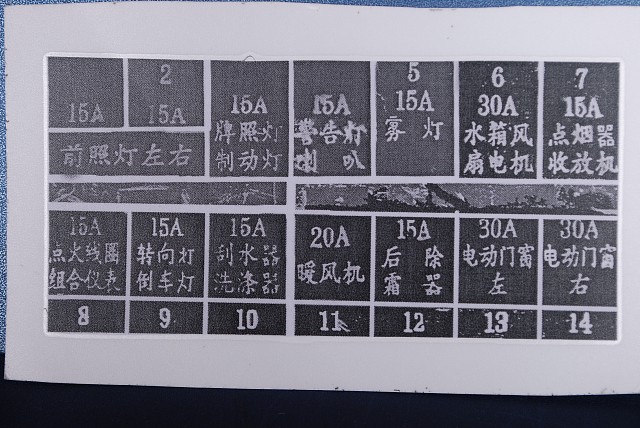 2 5 6 7
15A 15A 15A 15A 15A 30A 15A
前照灯左右 牌照灯 警告灯 雾灯 水箱风 点烟器
制动灯 喇叭 扇电机 收放机
15A 15A 15A 20A 15A 30A 30A
点火线圈 转向灯 刮水器 暖风机 后除 电动门窗 电动门窗
组合仪表 倒车灯 洗涤器 霜器 左 右
8 9 10 11 12 13 14